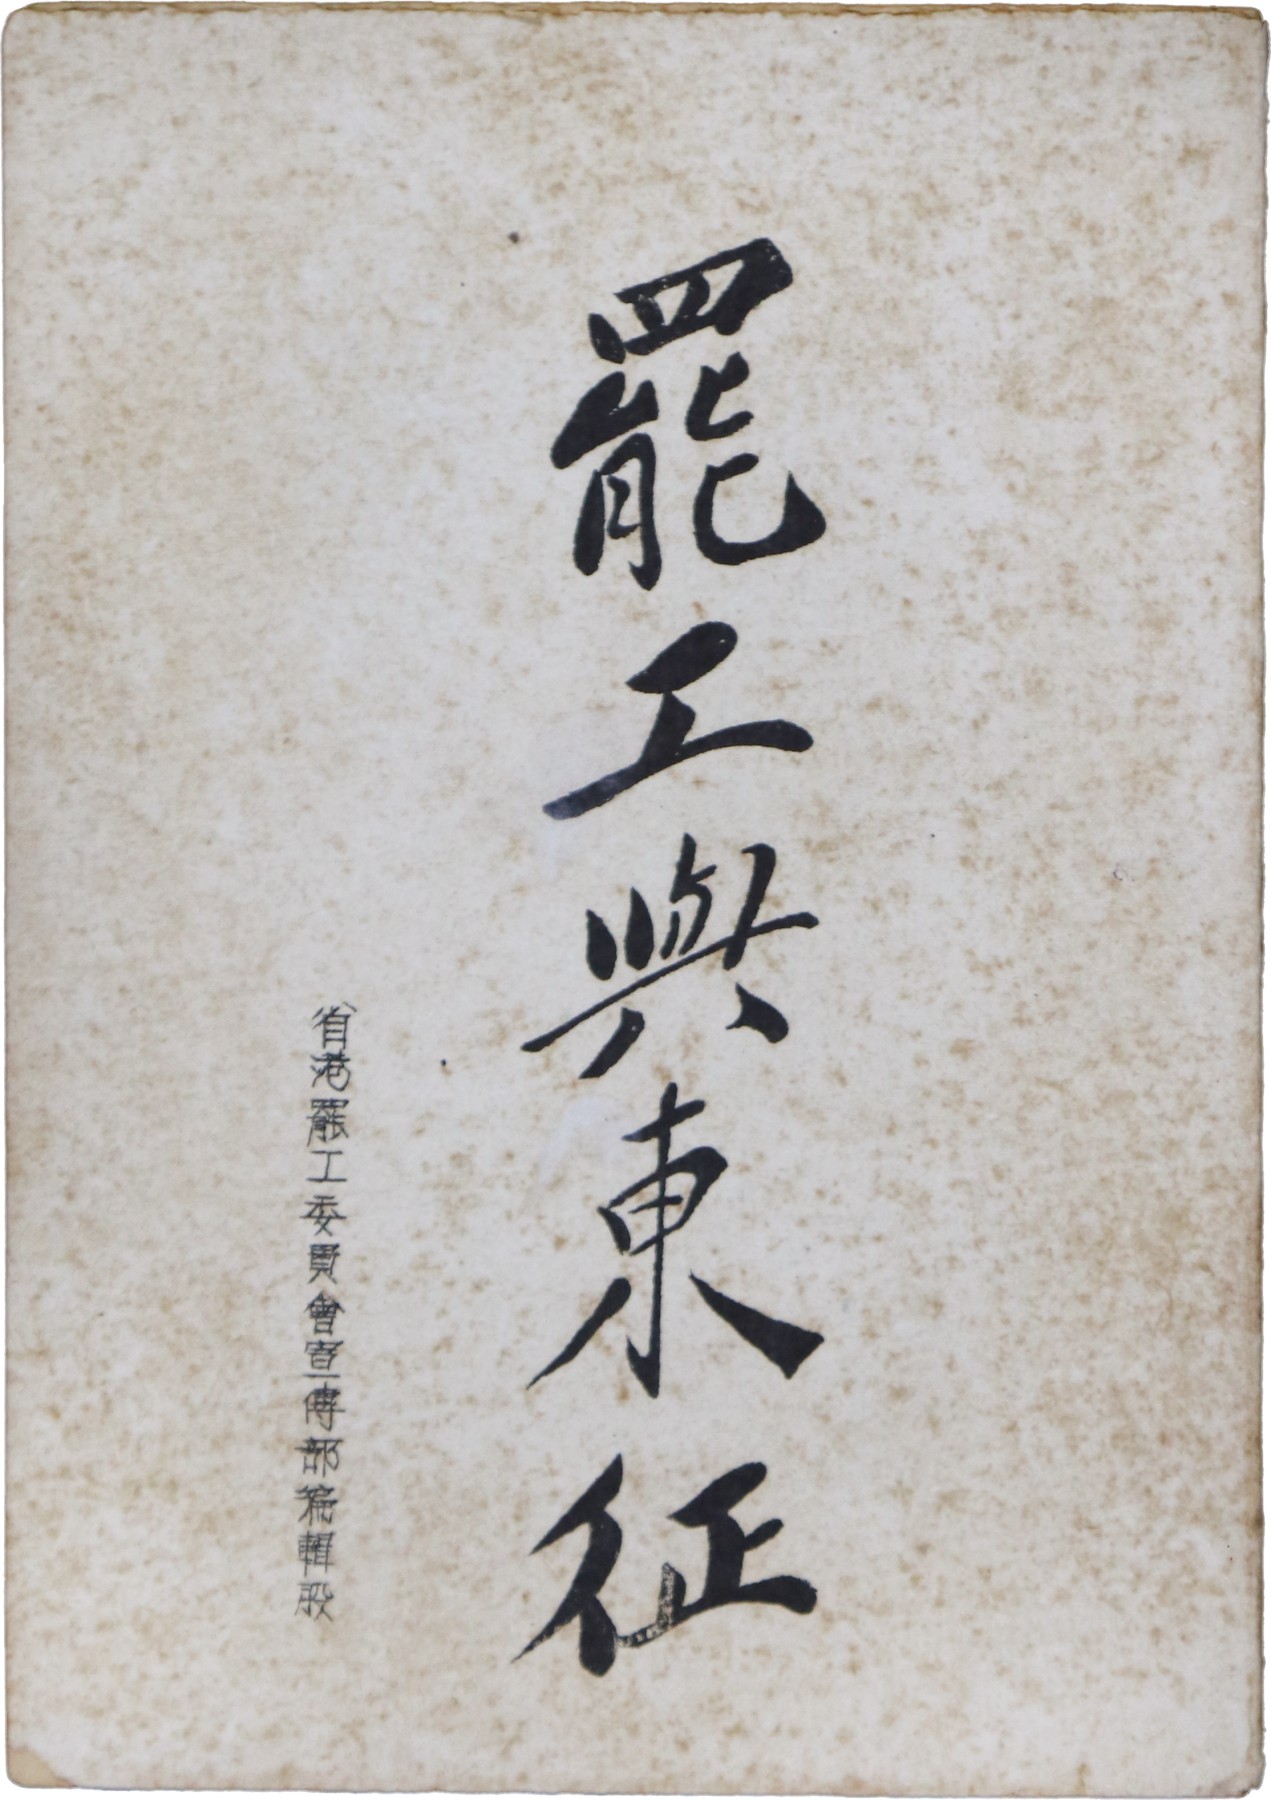 罷工與東征
省港罷工委員會宣傳部編輯股